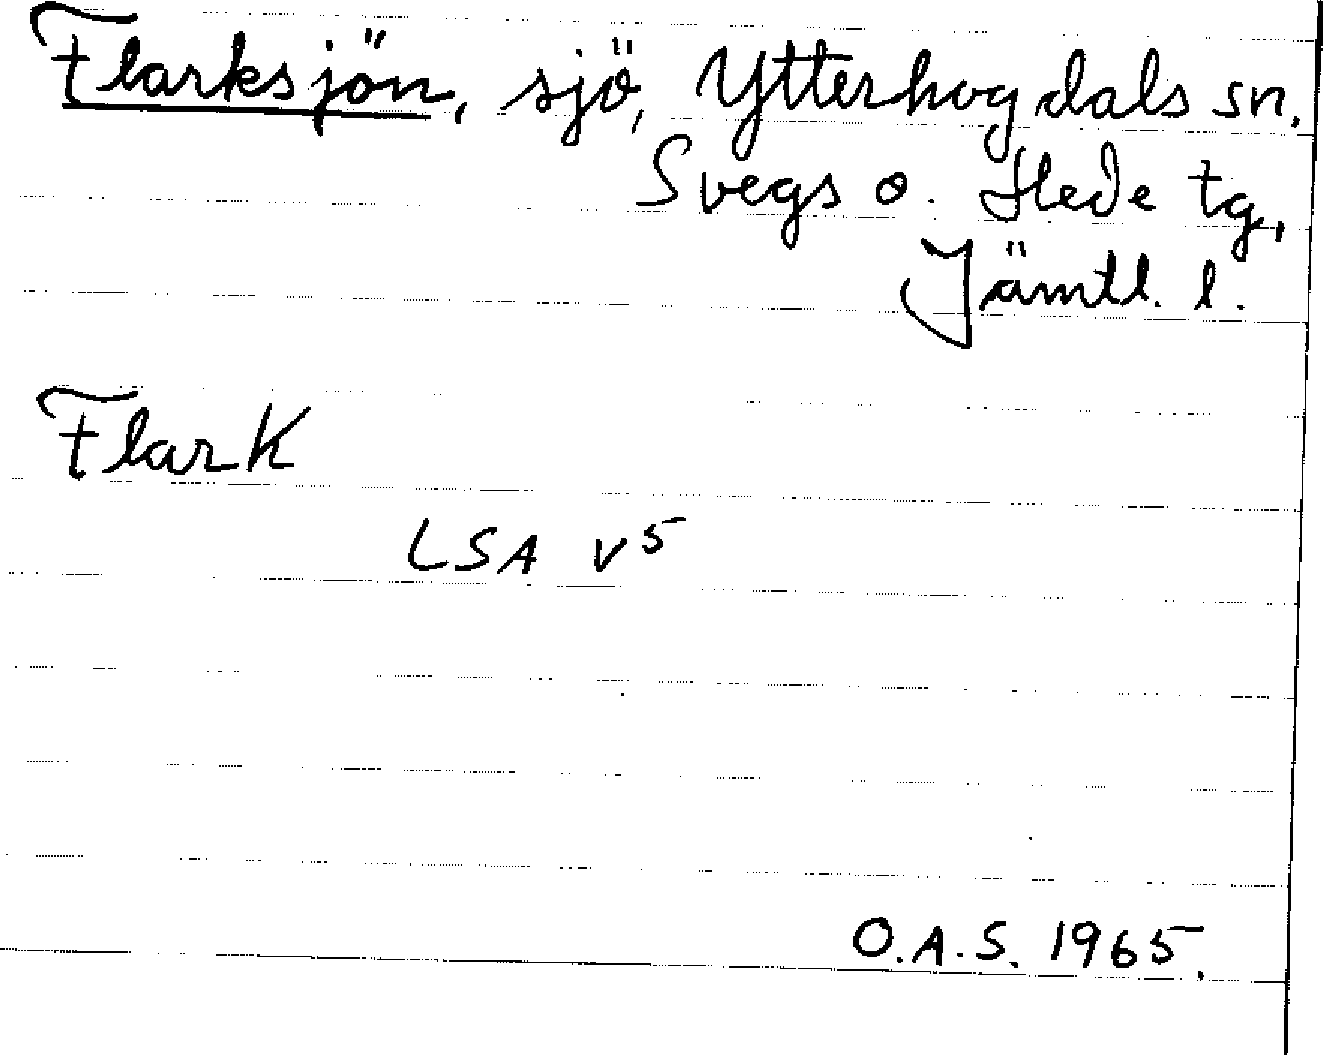 Flarksjön, sjö, Ytterhogdals sn.
Svegs o. Hede tg,
Jämtl. l.
Flark
LSA v5
O.A.S. 1965.